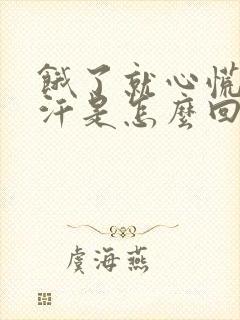 餓了就心慌
汗是怎麼回
虞海燕